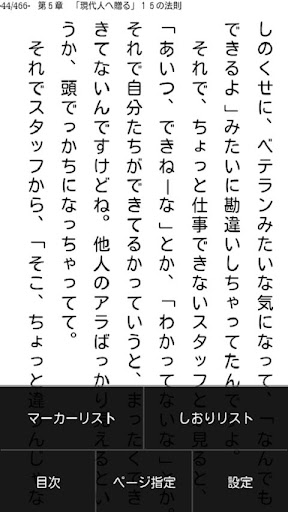 -44/466-　第５章　「現代人へ贈る」１５の法則
しのくせに、ベテランみたいな気になって、「なんでも
できるよ」みたいに勘違いしちゃってたんで よ。
それで、ちょっと仕事できないスタッフと 見ると、
「あいつ、できねーな」とか、「わかってないな」とか。
それで自分たちができてるかっていうと、まったくで
きてないんですけどね。他人のアラばっかり えるとい
うか、頭でっかちになっちゃってて。
それでスタッフから、「そこ、ちょっと違 んじゃな
マーカーリスト
しおりリスト
目次
ページ指定
設定